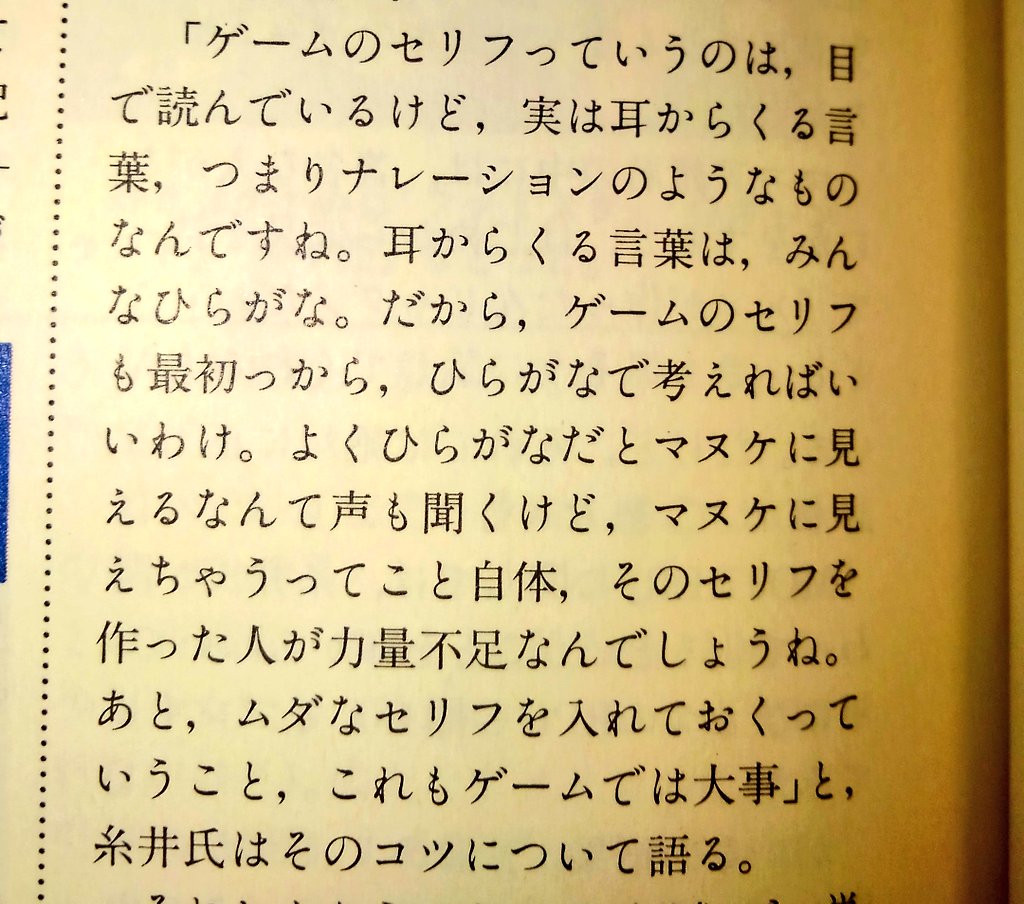 「ゲームのセリフっていうのは，目
で読んでいるけど，実は耳からくる言
葉，つまりナレーションのようなもの
なんですね。耳からくる言葉は，みん
なひらがな。だから，ゲームのセリフ
も最初っから，ひらがなで考えればい
いわけ。よくひらがなだとマヌケに見
えるなんて声も聞くけど，マヌケに見
えちゃうってこと自体，そのセリフを
作った人が力量不足なんでしょうね。
あと，ムダなセリフを入れておくって
いうこと，これもゲームでは大事」と，
糸井氏はそのコツについて語る。